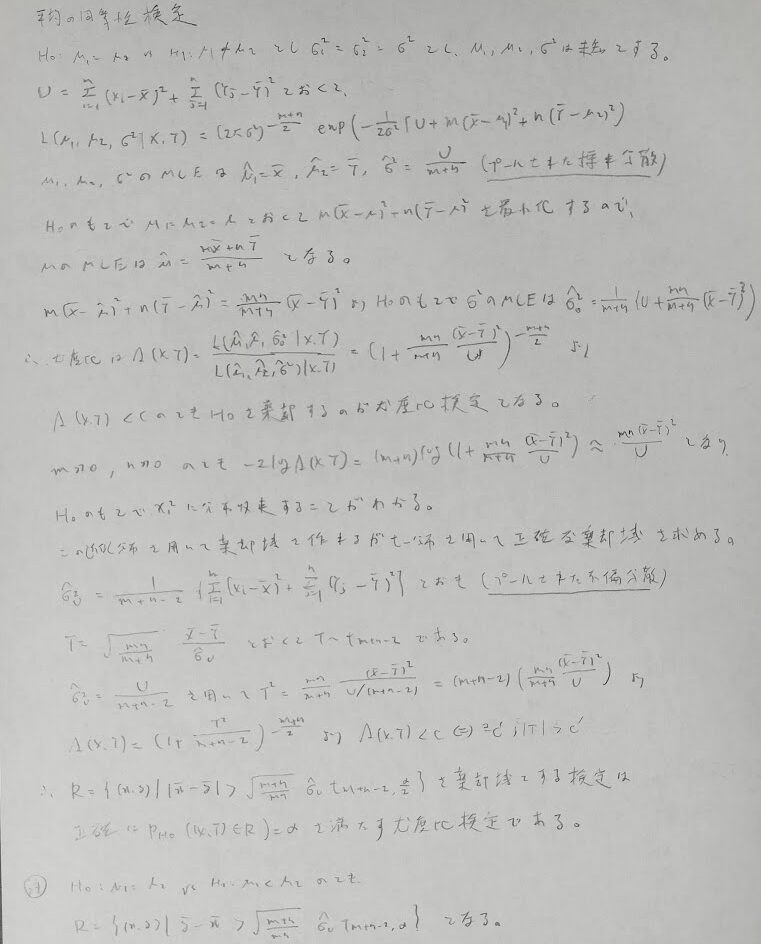 平均の同等性検定
H₀: μ₁ = μ₂ vs H₁: μ₁ ≠ μ₂ とし σ₁² = σ₂² = σ² とし、μ₁, μ₂, σ² は未知とする。
U = Σ_{i=1}^{m} (Xi - X̄)² + Σ_{j=1}^{n} (Yj - Ȳ)² とおくと、
L(μ₁, μ₂, σ² | X, Y) = (2πσ²)^{-(m+n)/2} exp(-1/2σ² {U + m(X̄ - μ₁)² + n(Ȳ - μ₂)²)
μ₁, μ₂, σ² の MLE は μ̂₁ = X̄, μ̂₂ = Ȳ, σ̂² = U/(m+n) (プールされた標本分散)
H₀ のもとで μ₁ = μ₂ = μ とおくと m(X̄ - μ)² + n(Ȳ - μ)² を最小化するので、
μ の MLE は μ̂ = (mX̄ + nȲ)/(m+n) となる。
m(X̄ - μ̂)² + n(Ȳ - μ̂)² = mn/(m+n) (X̄ - Ȳ)² より H₀ のもとで σ² の MLE は σ̂₀² = 1/(m+n) (U + mn/(m+n) (X̄ - Ȳ)²)
∴ 尤度比は Λ(X, Y) = L(μ̂, μ̂, σ̂₀² | X, Y) / L(μ̂₁, μ̂₂, σ̂² | X, Y) = (1 + mn/(m+n) (X̄ - Ȳ)²/U)^{-(m+n)/2} より
Λ(X, Y) < C のとき H₀ を棄却するのが尤度比検定となる。
m→∞, n→∞ のとき -2 log Λ(X, Y) = (m+n) log(1 + mn/(m+n) (X̄ - Ȳ)²/U) ≈ mn(X̄ - Ȳ)²/U となり
H₀ のもとで χ₁² に分布収束することがわかる。
この近似分布を用いて棄却域を作れるが t-分布を用いて正確な棄却域を求める。
σ̂_U² = 1/(m+n-2) {Σ_{i=1}^{m} (Xi - X̄)² + Σ_{j=1}^{n} (Yj - Ȳ)²} とおき (プールされた不偏分散)
T = √(mn/(m+n)) (X̄ - Ȳ)/σ̂_U とおくと T ~ t_{m+n-2} である。
σ̂_U² = U/(m+n-2) を用いて T² = mn/(m+n) (X̄ - Ȳ)²/(U/(m+n-2)) = (m+n-2) (mn/(m+n) (X̄ - Ȳ)²/U) より
Λ(X, Y) = (1 + T²/(m+n-2))^{-(m+n)/2} より Λ(X, Y) < C ⇔ ∃c'; |T| > c'
∴ R = {(x, y) | |x̄ - ȳ| > √((m+n)/mn) σ̂_U t_{m+n-2, α/2}} を棄却域とする検定は
正確に P_{H₀} ((X, Y) ∈ R) = α を満たす尤度比検定である。
H₀: μ₁ = μ₂ vs H₁: μ₁ < μ₂ のとき
R = {(x, y) | ȳ - x̄ > √((m+n)/mn) σ̂_U t_{m+n-2, α}} となる。